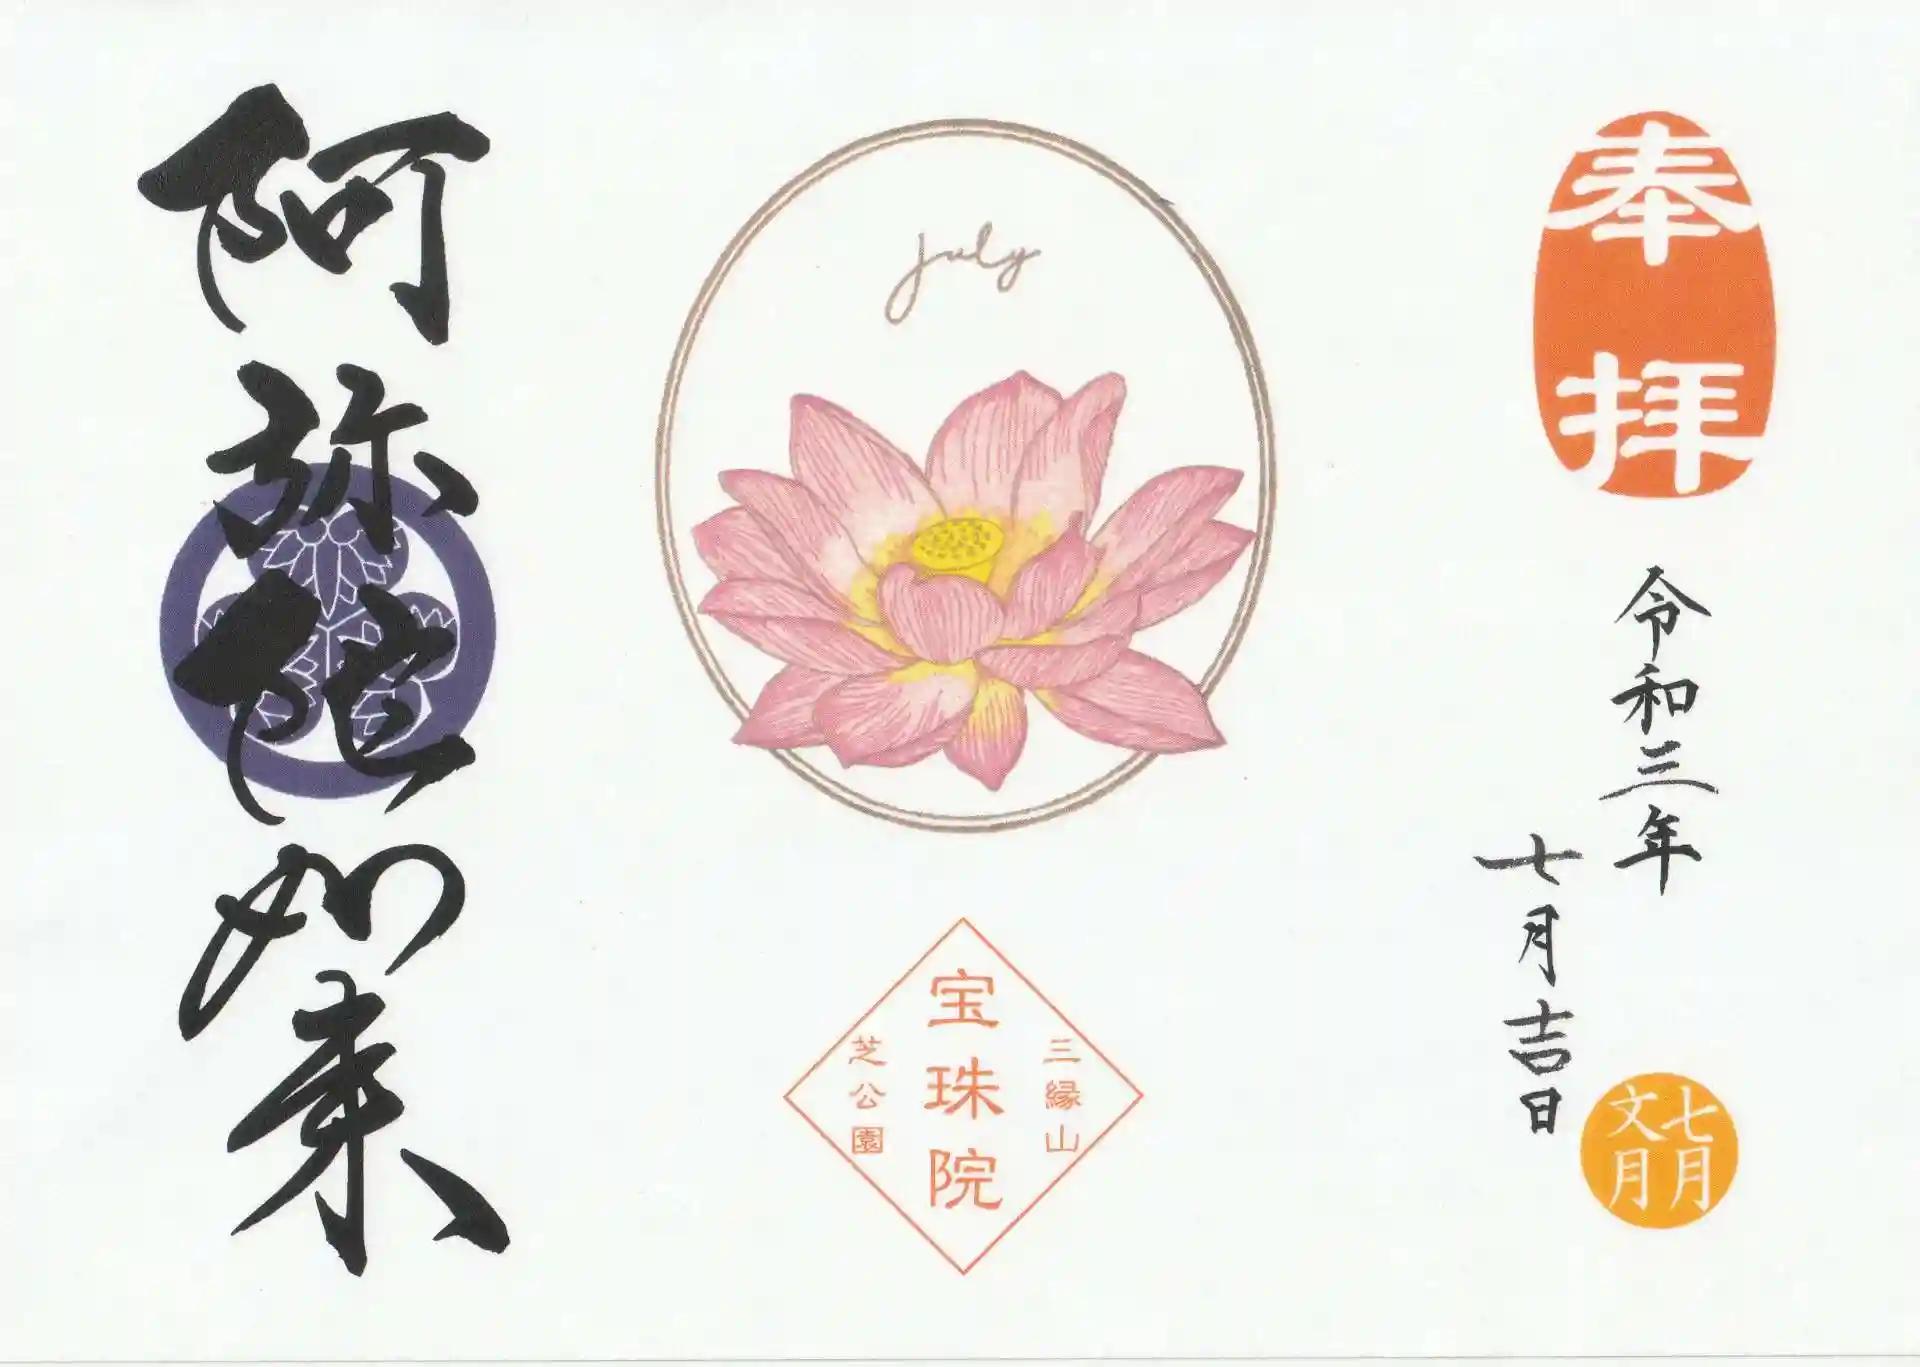 奉拝
令和三年
七月吉日
七月
文月
July
三縁山
宝珠院
芝公園
阿弥陀如来